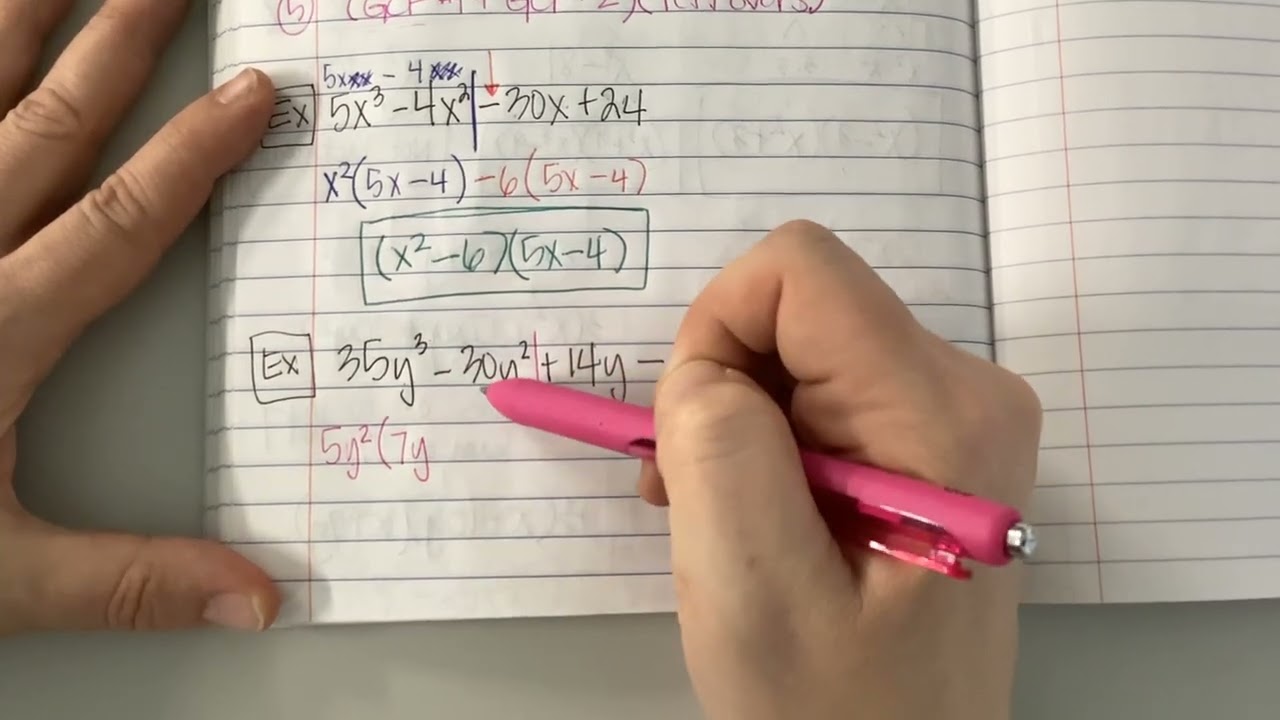 5
5x - 4
Ex 5x³ - 4x² - 30x + 24
x²(5x - 4) - 6(5x - 4)
(x² - 6)(5x - 4)
Ex 35y³ - 30y² + 14y -
5y²(7y